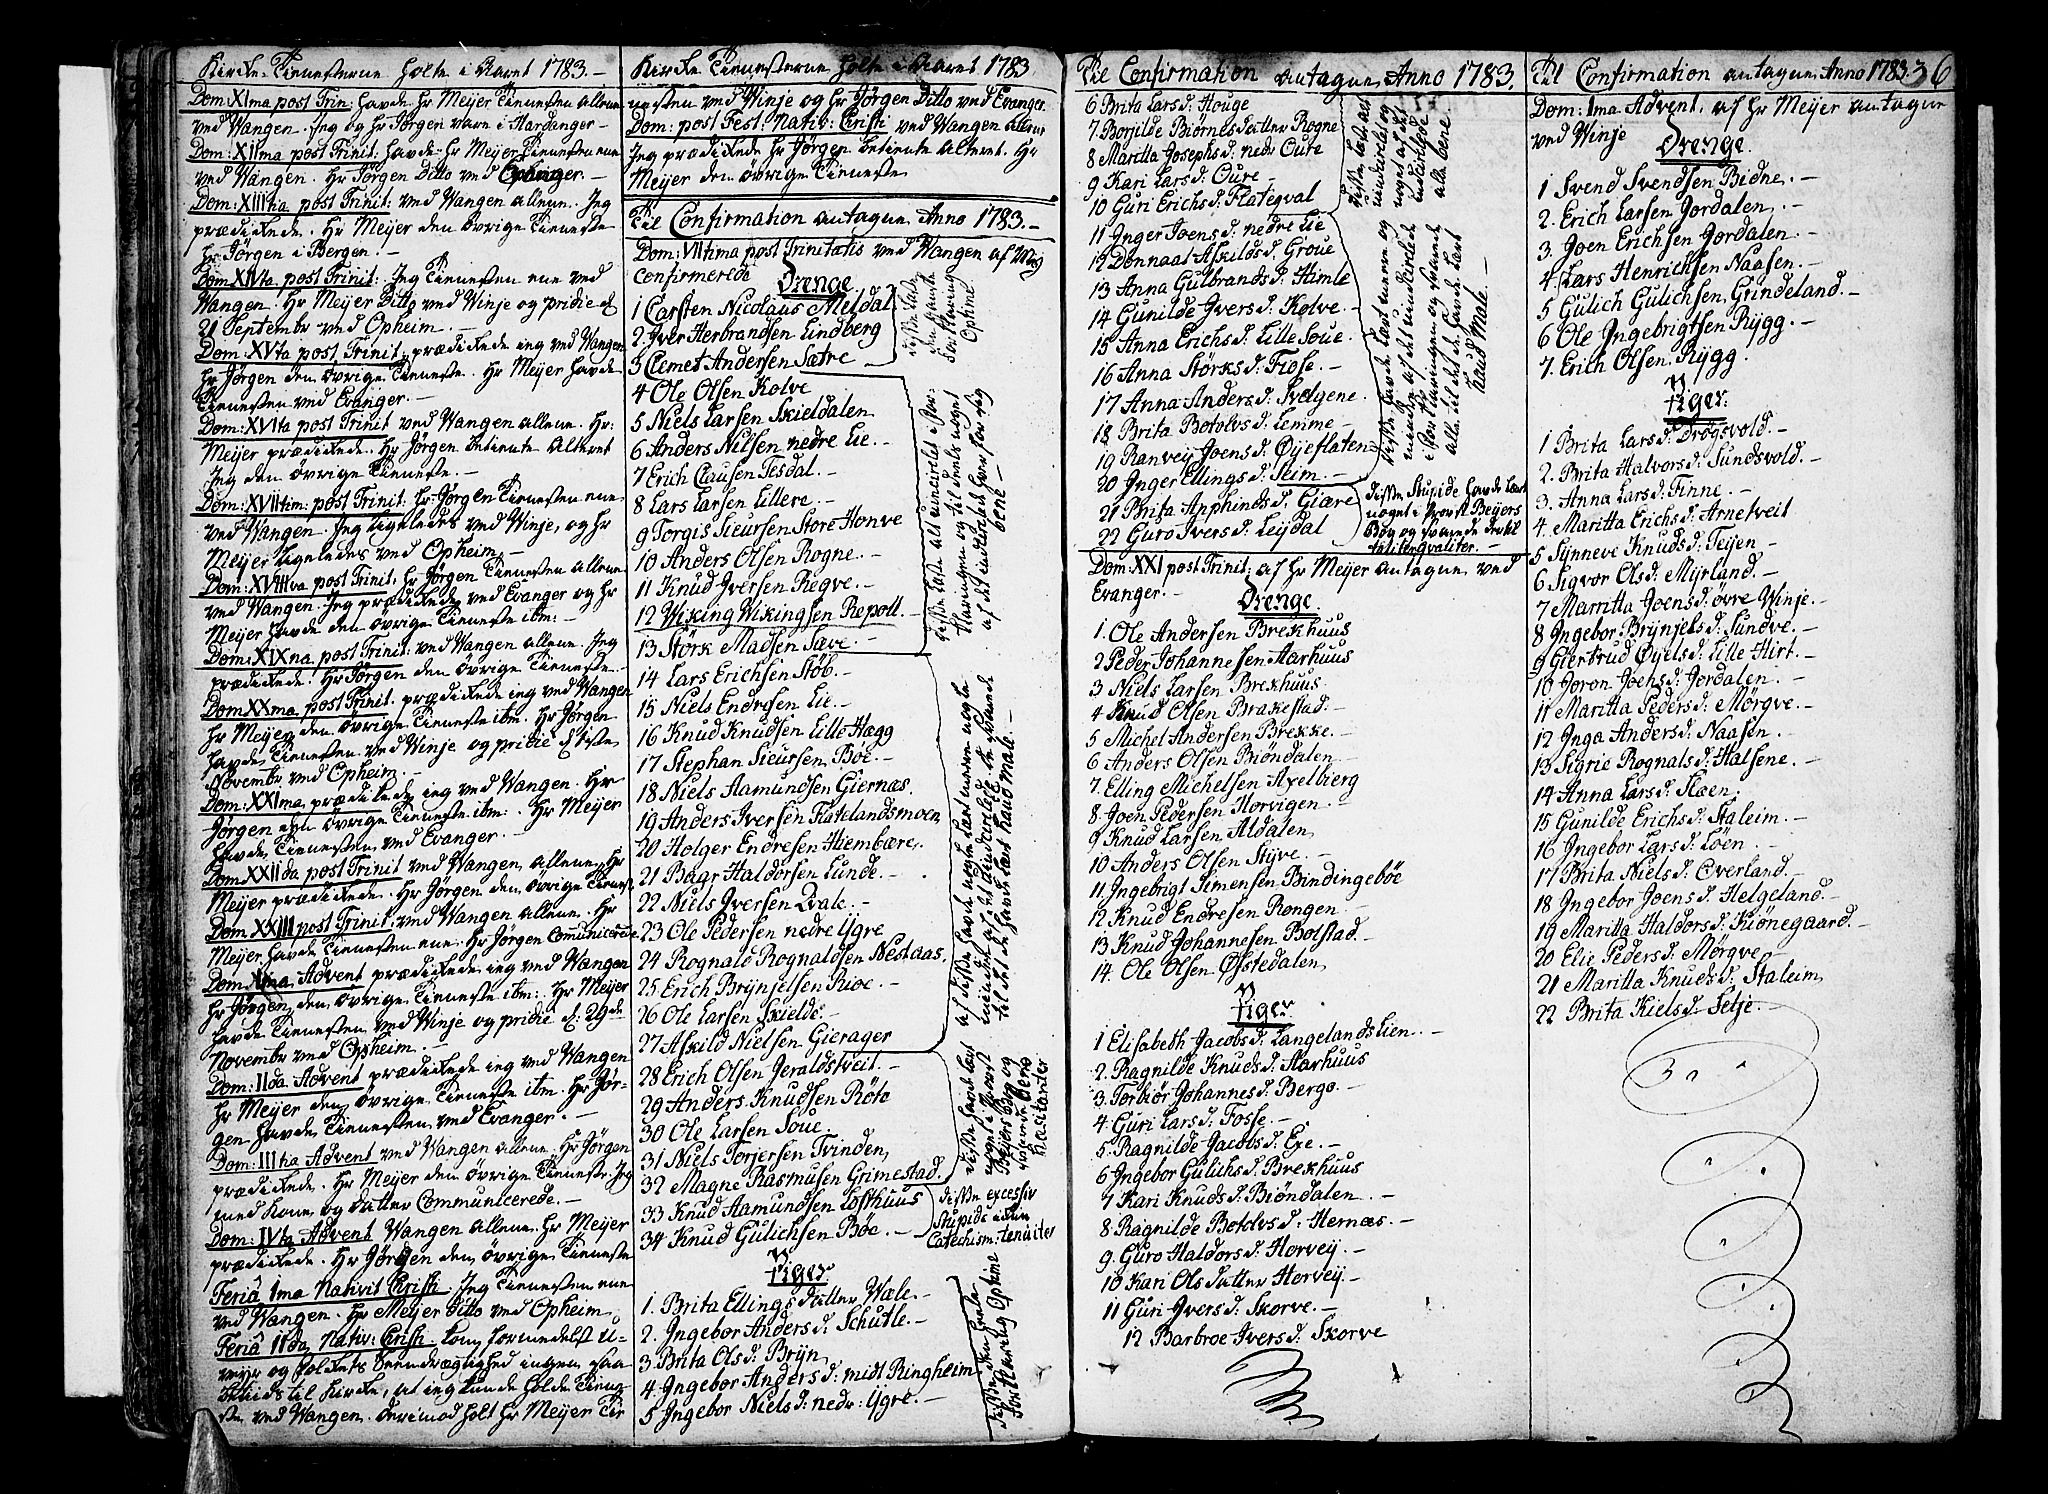 Kirke-Tienesterne holte i Aaret 1783.-
Dom: XIma post Trin: havde Hr Meijer Tienesten allene
ved Wangen. Jeg og Hr Jörgen vare i Hardanger-
Dom: XIIma post Trinit: havde Hr Meijer Tienesten ene
ved Wangen. Hr Jörgen Ditto ved Evanger.-
Dom: XIIItia post Trinit: ved Wangen allene. Jeg
prædikede. Hr Meijer den övrige Tieneste
Hr Jörgen i Bergen.-
Dom: XIVta post Trinit: Jeg Tienesten ene ved
Wangen. Hr Meijer Ditto ved Winje og pridie d.
21 Septembr ved Opheim.-
Dom: XVta post Trinit: prædikede ieg ved Wangen
Hr Jörgen den övrige Tieneste. Hr Meijer havde
Tienesten ved Evanger.-
Dom: XVIta post Trinit ved Wangen allene. Hr:
Meijer prædikede. Hr Jörgen betiente Alteret
Jeg den övrige Tieneste.-
Dom: XVIItim: post Trinit: Hr Jörgen Tienesten ene
ved Wangen. Jeg ligeledes ved Winje, og Hr
Meijer ligeledes ved Opheim.-
Dom: XVIIIva post Trinit: Hr Jörgen Tienesten allene
ved Wangen. Jeg prædikede ved Evanger og Hr
Meijer havde den övrige Tieneste ibm:-
Dom: XIXna post Trinit: ved Wangen allene. Jeg
prædikede. Hr Jörgen den övrige Tieneste.
Dom XXma post Trinit: prædikede ieg ved Wangen
Hr Meijer den övrige Tieneste ibm. Hr Jörgen
havde Tienesten ved Winje og pridie d 1ste
Novembr ved Opheim.-
Dom: XXIma prædikede ieg ved Wangen. Hr
Jörgen den övrige Tieneste ibm: Hr Meijer
havde Tienesten ved Evanger.-
Dom: XXIIda post Trinit ved Wangen allene. Hr
Meijer prædikede. Hr Jörgen den övrige Tienest
Dom: XXIII post Trinit: ved Wangen allene. Hr
Meijer havde Tienesten ene. Hr Jörgen Communicerede
Dom: Ima Advent prædikede ieg ved Wangen
Hr Jörgen den övrige Tieneste ibm: Hr Meijer
havde Tienesten ved Winje og pridie d: 29de
Novembr ved Opheim.-
Dom: IIda Advent prædikede ieg ved Wangen
Hr Meijer den övrige Tieneste ibm. Hr Jör-
gen havde Tienesten ved Evanger.-
Dom: IIItia Advent ved Wangen allene. Hr Jörgen
prædikede. Hr Meijer den övrige Tieneste. Jeg
med Kone og Datter Communicerede.-
Dom: IVta Advent Wangen allene. Hr Meijer
prædikede. Hr Jörgen den övrige Tieneste
Feria Ima Nativit Christi. Jeg Tienesten ene
ved Wangen. Hr Meijer Ditto ved Opheim
Feria IIda Nativ: Christi kom formedelst U-
veyr og Folkets Tvendrægtighed ingen saa
betids til Kirke, at ieg kunde holde Tiene
ste ved Wangen. Derimod holt Hr Meijer Tie
Kirke Tienesterne holte i Aaret 1783
nesten ved Winje og Hr Jörgen Ditto ved Evanger
Dom: post Fest: Nativ: Christi ved Wangen allene
Jeg prædikede Hr Jörgen betiente Alteret. Hr
Meijer den övrige Tieneste
Til Confirmation antagne Anno 1783.-
Dom: VIItima post Trinitatis ved Wangen af Mig
confirmerede
Drenge
1 Carsten Nicolaus Meldal
2 Iver Herbrandsen Lindberg
3 Clemet Andersen Sætre
4 Ole Olsen Kolve
5 Niels Larsen Skieldalen
6 Anders Nilsen nedre Lie.-
7 Erich Clausen Tesdal.-
8 Lars Larsen Lillere.-
9 Torgis Sieursen Store Honve
10 Anders Olsen Rogne.-
11 Knud Iversen Regve.-
12 Wiking Wikingsen Repoll.-
13 Störk Madsen Sæve.-
14 Lars Erichsen Stöb.-
15 Niels Endresen Lie.-
16 Knud Knudsen Lille Hægg
17 Stephan Sieursen Böe.-
18 Niels Aamundsen Giernæs.
19 Anders Iversen Flatelandsmoen
20 Holger Endresen Hiembære.
21 Baar Haldorsen Lunde.-
22 Niels Iversen Qvale.-
23 Ole Pedersen nedre Ygre
24 Rognald Rognaldsen Nestaas.
25 Erich Brynjelsen Rioe.-
26 Ole Larsen Skielde.-
27 Askild Nielsen Gierager
28 Erich Olsen Jeraldstveit.-
29 Anders Knudsen Röte
30 Ole Larsen Soue.-
31 Niels Torjersen Tvinden
32 Magne Rasmusen Grimestad.
33 Knud Aamundsen Lofthuus
34 Knud Gulichsen Böe.-
disse læste
den heele
Forklaring
Optime
disse læste alt undvirelet i For-
klaringen og til deels noget
af det indvirlede svarede
bene-
af disse havde nogle lært uden nogle
mindre af det undvirlede de svarede
til det de havde lært haud male.-
disse havde lært
noget i Provst
Beijers Bog og
svarede
hæsitanter
disse excessiv
stupide ikkun
Catechism: tenuiter
Piger
1. Brita Ellings datter Wæle.-
2. Ingebor Anders d: Schutle.-
3. Brita Ols d: Bryn
4. Ingebor Anders d: midt Ringheim
5 Ingebor Niels d: nedr: Ygre.-
disse den heele
Forklaring Optime
Til Confirmation antagne Anno 1783.
6 Brita Lars d. Houge
7. Borjilde Biörnes datter Rogne
8 Maritta Josephs d: nedr Oure
9 Kari Lars d: Oure-
10 Guri Erichs d: Flategval
11 Inger Joens d: nedre Lie
12 Donnaat Askilds d: Groue
13 Anna Gulbrands d: Himle
14 Gunilde Ivers d: Kolve.-
15 Anna Erichs d: Lille Soue.-
16 Anna Störks d: Fiose.-
17 Anna Anders d: Svelgene.
18 Brita Botolvs d: Lemme-
19 Ranvey Joens d: Öyeflaten
20 Inger Ellings d: Seim.-
21 Brita Apphinds d. Giære
22 Guro Ivers d: Leydal
disse læst alt
undvirelet og
noget af det
indvirlede
alle bene.
disse havde lært neren og
mindre af det undvirlede
i Forklaringen og svarede
alle til det de havde lært
haud male.-
disse stupide havde lært
noget i Provst Beijers
Bog og svarede dertil
taliterqvaliter.-
Dom: XXI post Trinit: af Hr Meijer antagne ved
Evanger.-
Drenge.
1. Ole Andersen Brekhuus
2 Peder Johannesen Aarhuus
3 Niels Larsen Brekhuus
4 Knud Olsen Brakestad.-
5 Michel Andersen Brekke.-
6 Anders Olsen Biöndalen
7. Elling Michelsen Axelberg
8. Joen Pedersen Horvigen.-
9 Knud Larsen Aldalen
10 Anders Olsen Styve.-
11 Ingebrigt Simensen Bindingeböe
12 Knud Endresen Rongen.-
13 Knud Johannesen Bolstad.-
14. Ole Olsen Öfstedalen
Piger
1 Elisabeth Jacobs d: Langelandslien.-
2. Ragnilde Knuds d: Aarhuus
3. Torbiör Johannes d: Berge.-
4. Guri Lars d: Fosse.-
5. Ragnilde Jacobs d: Exe.-
6 Ingebor Gulichs d: Brekhuus
7 Kari Knuds d: Biöndalen.-
8. Ragnilde Botolvs d: Hernæs.-
9. Guro Haldors d: Horvey.-
10 Kari Ols datter Horvey-
11 Guri Ivers d: Skorve.-
12 Barbroe Ivers d: Skorve
Til Confirmation antagne Anno 1783. 36
Dom: Ima Advent. af Hr Meijer antagne
ved Winje
Drenge.
1 Svend Svendsen Bidne.-
2. Erich Larsen Jordalen.-
3. Joen Erichsen Jordalen.-
4. Lars Henrichsen Naasen.-
5 Gulich Gulichsen Grindeland.-
6 Ole Ingebrigtsen Rygg.-
7. Erich Olsen Rygg.
Piger.
1 Brita Lars d: Drögsvold.-
2. Brita Halvors d: Sundsvold.-
3. Anna Lars d: Finne.-
4. Maritta Erichs d: Arnetveit
5 Synneve Knuds d: Teijen-
6 Sigvor Ols d: Myrland.-
7 Marritta Joens d: övre Winje.-
8 Ingebor Brynjels d: Sundve.-
9 Giertrud Öyels d: Lille Hirt.-
10 Joron Joens d: Jordalen.-
11 Maritta Peders d: Mörgve.-
12 Inga Anders d: Naasen.-
13 Sigrie Rognals d: Halsene.-
14 Anna Lars d: Haen.
15 Gunilde Erichs d: Staleim.-
16 Ingebor Lars d: Löen.-
17 Brita Niels d: Overland.-
18 Ingebor Joens d: Helgeland.-
19 Maritta Haldors d: Kiönegaard.-
20 Elie Peders d: Mörgve-
21 Maritta Knuds d: Staleim
22 Brita Kiels d: Setje.-